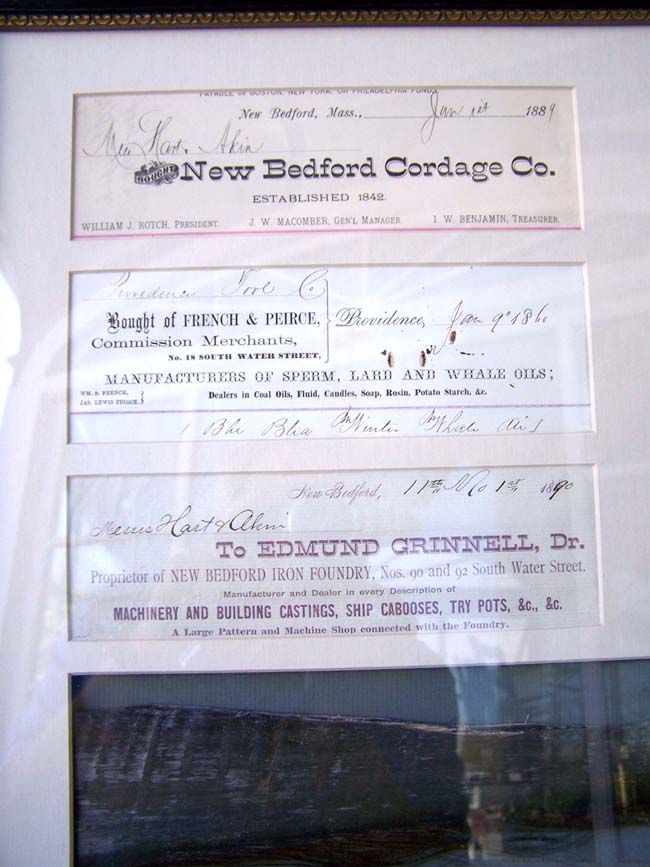 PAYABLE IN BOSTON, NEW YORK, OR PHILADELPHIA FUNDS
New Bedford, Mass., Jan 1st 1889
Hart & Akin
BOUGHT New Bedford Cordage Co.
ESTABLISHED 1842.
WILLIAM J. ROTCH, PRESIDENT. J. W. MACOMBER, GEN'L MANAGER. I. W. BENJAMIN, TREASURER.
Providence Tool Co
Bought of FRENCH & PEIRCE,
Commission Merchants,
No. 18 SOUTH WATER STREET,
Providence, Jan 9" 1860
MANUFACTURERS OF SPERM, LARD AND WHALE OILS;
WM. B. FRENCH,
JAS. LEWIS PEIRCE.
Dealers in Coal Oils, Fluid, Candles, Soap, Rosin, Potato Starch, &c.
1 Bbl Winter Whale
New Bedford, 11th Mo 1st 1890
Hart & Akin
To EDMUND GRINNELL, Dr.
Proprietor of NEW BEDFORD IRON FOUNDRY, Nos. 90 and 92 South Water Street.
Manufacturer and Dealer in every Description of
MACHINERY AND BUILDING CASTINGS, SHIP CABOOSES, TRY POTS, &c., &c.
A Large Pattern and Machine Shop connected with the Foundry.